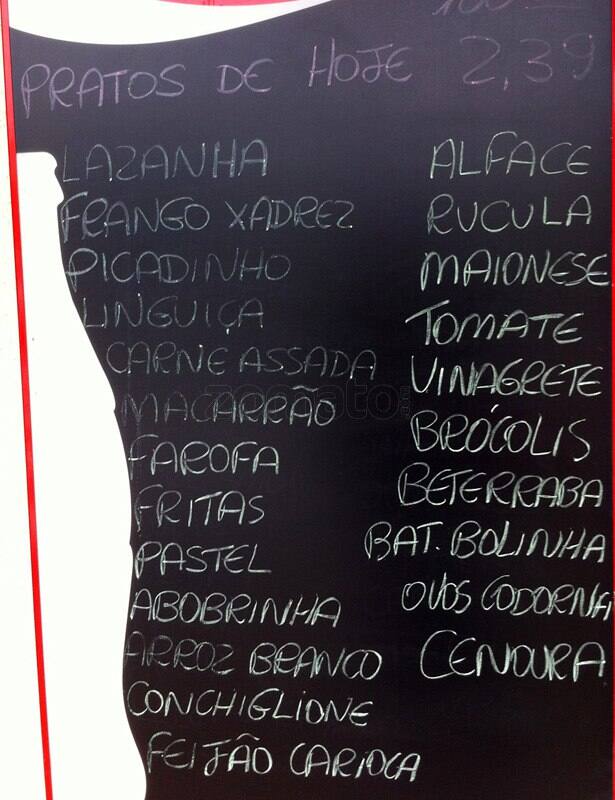 PRATOS DE HOJE 2,39
LAZANHA
FRANGO XADREZ
PICADINHO
LINGUIÇA
CARNE ASSADA
MACARRÃO
FAROFA
FRITAS
PASTEL
ABOBRINHA
ARROZ BRANCO
CONCHIGLIONE
FEIJÃO CARIOCA
ALFACE
RUCULA
MAIONESE
TOMATE
VINAGRETE
BRÓCOLIS
BETERRABA
BAT. BOLINHA
OVOS CODORNA
CENOURA